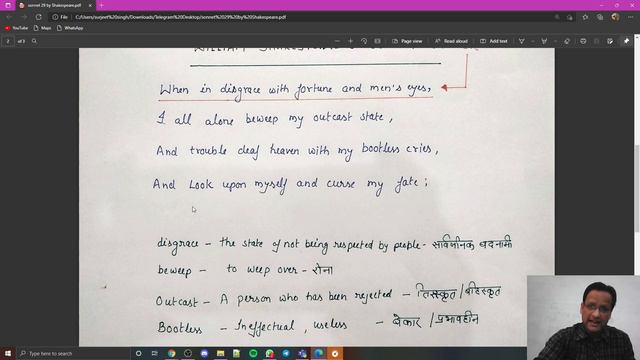 sonnet 29 by Shakespeare.pdf
File | C:/Users/surjeet%20singh/Downloads/Telegram%20Desktop/sonnet%2029%20by%20Shakespeare.pdf
YouTube Maps WhatsApp
2 of 3 Page view Read aloud Add text Draw Highlight Erase
When in disgrace with fortune and men's eyes,
I all alone beweep my outcast state,
And trouble deaf heaven with my bootless cries,
And Look upon myself and curse my fate;
disgrace - the state of not being respected by people - सार्वजनिक बदनामी
beweep - to weep over - रोना
Outcast - A person who has been rejected - तिरस्कृत / बहिष्कृत
Bootless - Ineffectual, useless - बेकार / प्रभावहीन
Type here to search